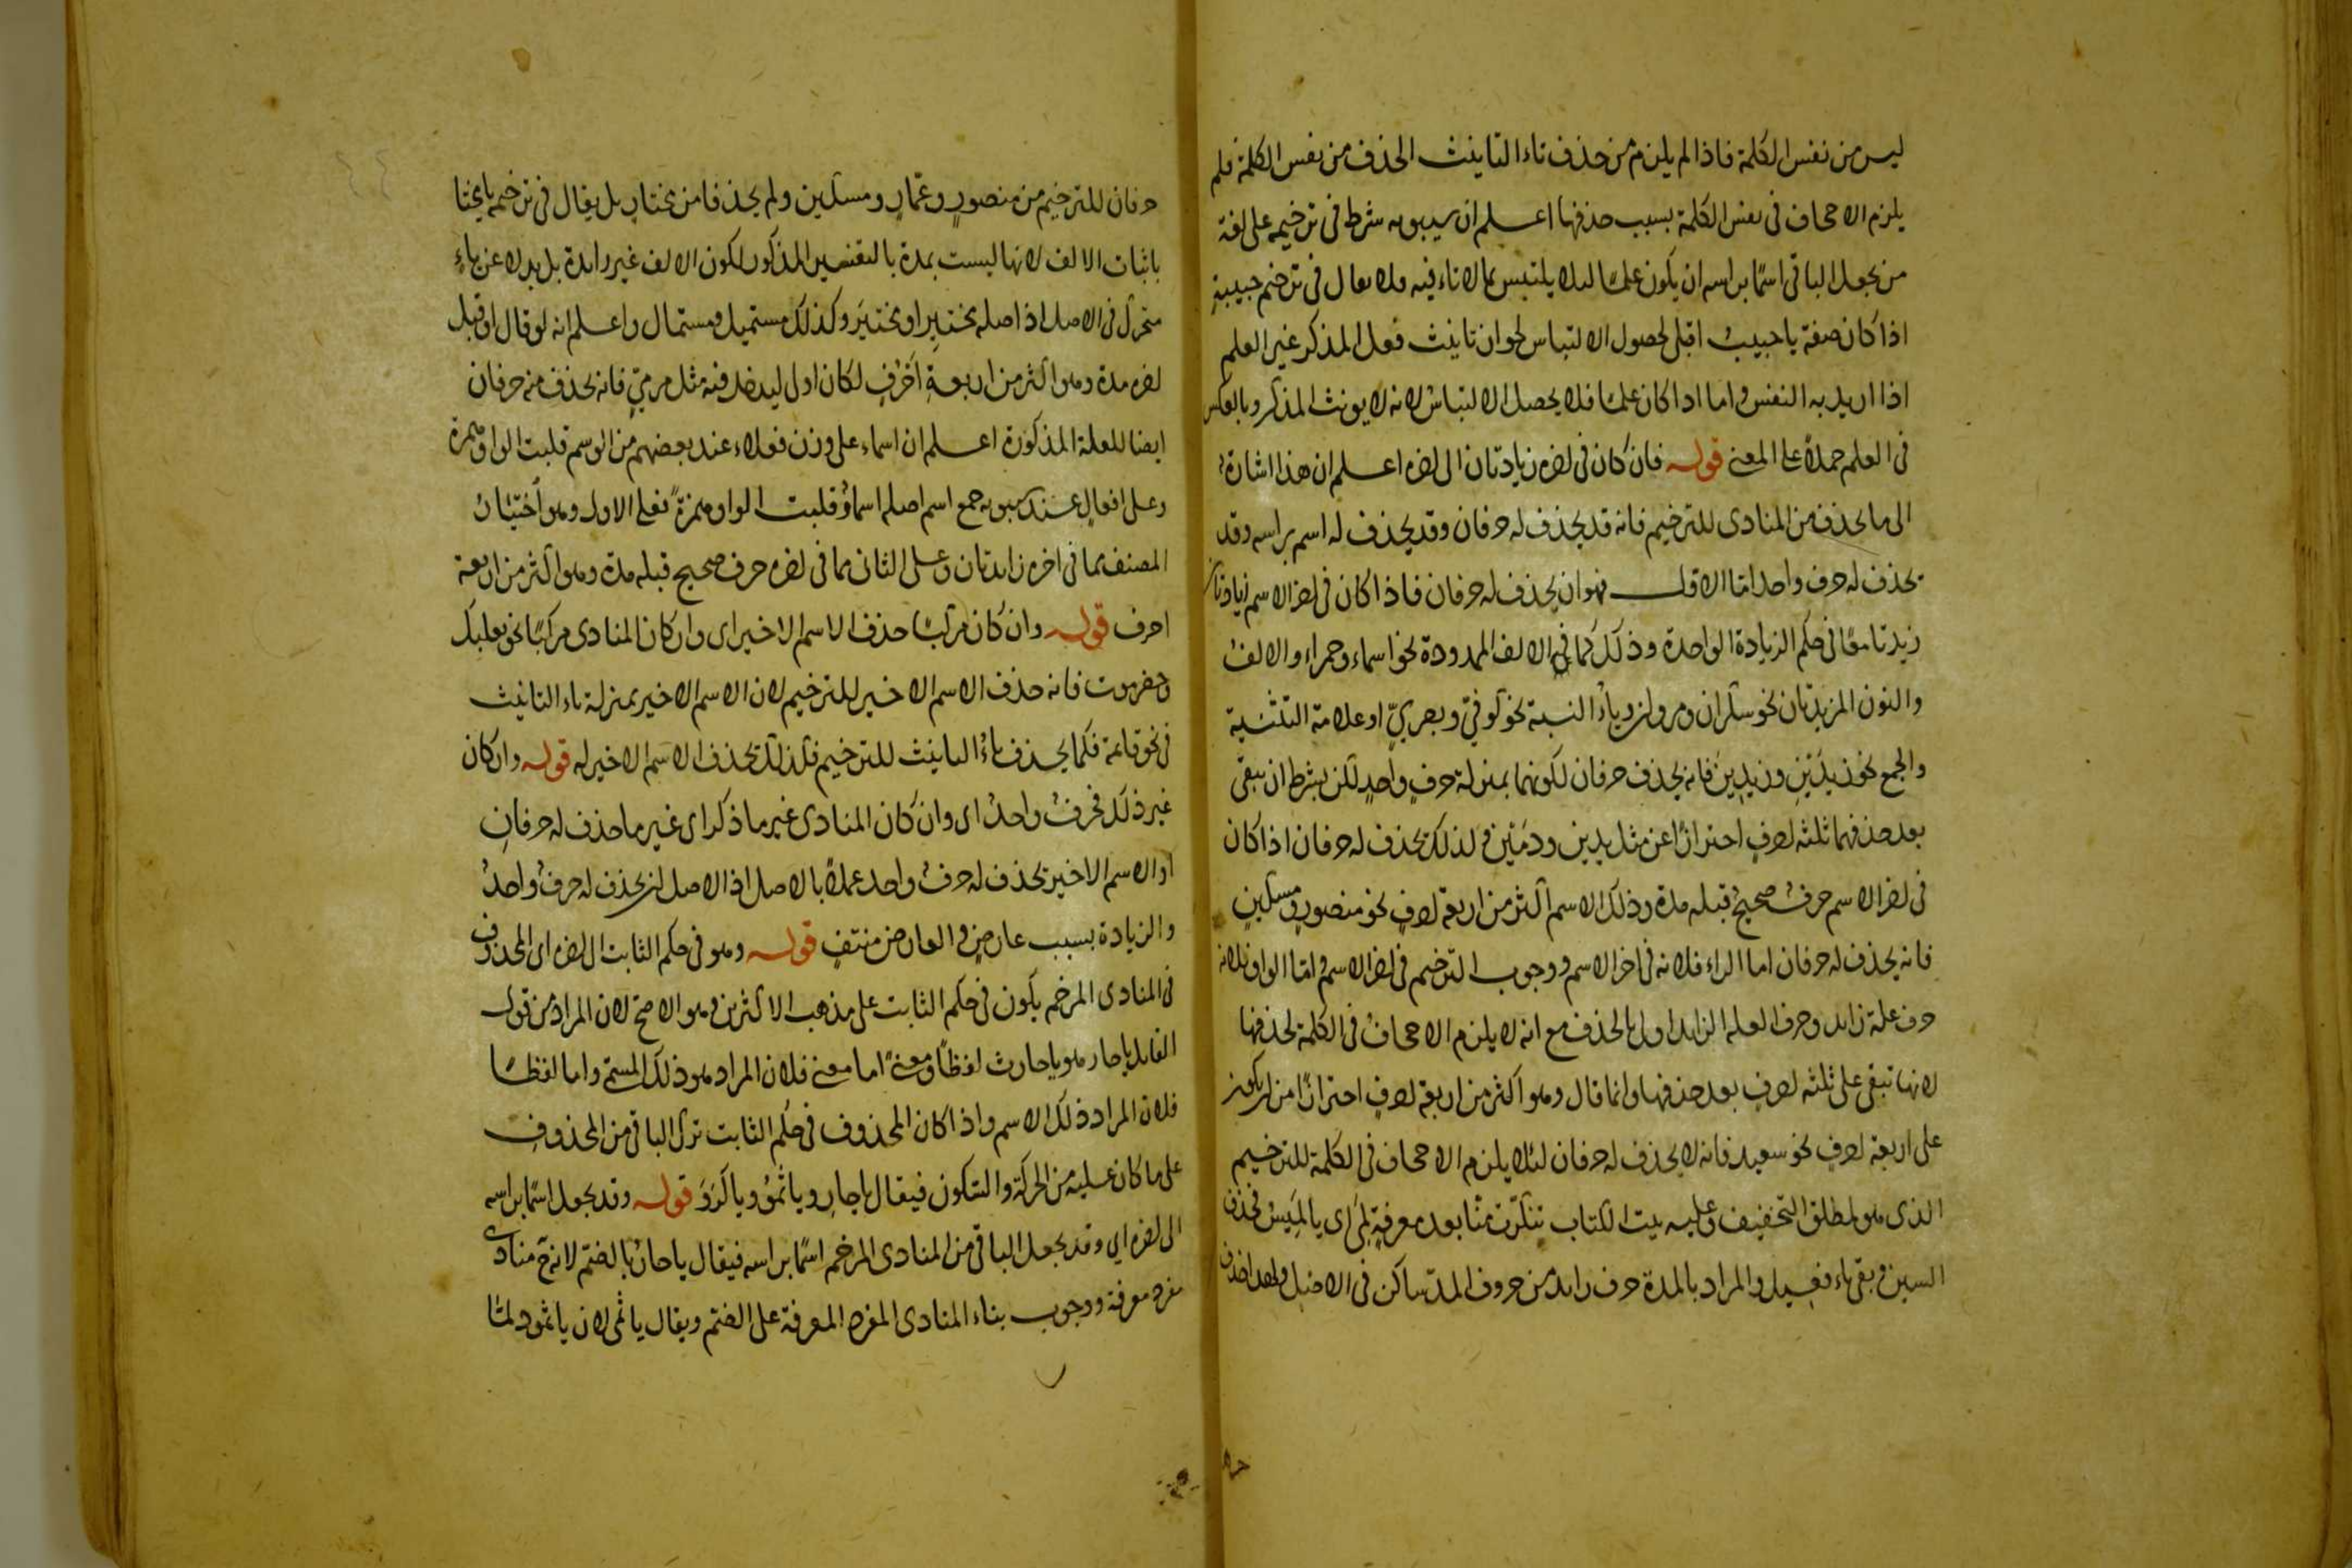 ليس من نفس الكلمة فاذا لم يلزم من حذف تاء التانيث الحذف من نفس الكلمة فلم
يلزم الاجحاف فى نفس الكلمة بسبب حذفها اعلم ان سيبويه شرط فى ترخيمه على لغة
من يجعل الباقى اسمًا براسه ان يكون علمًا لئلا يلتبس بما لا تاء فيه فلا يقال فى ترخيم حبيبةٍ
اذا كان صفة يا حبيبُ اقبلى لحصول الالتباس لجواز تانيث فعل المذكر غير العلم
اذا اريد به النفس واما اذا كان علمًا فلا يحصل الالتباس لانه لا يونث المذكر وبالعكس
فى العلم حملاً على المعنى قوله فان كان فى اخره زيادتان الى اخره اعلم ان هذا اشارة
الى ما يحذف من المنادى للترخيم فانه قد يحذف له حرفان وقد يحذف له اسم براسه وقد
يحذف له حرف واحد امّا الاول فهو ان يحذف له حرفان فاذا كان فى اخر الاسم زيادتان
زيدتا معًا فى حكم الزيادة الواحدة وذلك كما فى الالف الممدودة نحو اسماء وحمراء والالفُ
والنون المزيدتان نحو سكران ومروان وياءُ النسبة نحو كوفىّ وبصرىّ او علامة التثنية
والجمع نحو زيدَيْنِ وزيدِينَ فانه يحذف حرفان لكونهما بمنزلة حرفٍ واحدٍ لكن بشرط ان يبقى
بعد حذفهما ثلثه احرفٍ احترازًا عن مثل يدين ودمَيْن وكذلك يحذف له حرفان اذا كان
فى اخر الاسم حرفٌ صحيحٌ قبله مدة وذلك الاسم اكثر من اربعة احرفٍ نحو منصورٍ ومسكينٍ
فانه يحذف له حرفان اما الراء فلانه فى اخر الاسم ووجوب الترخيم فى اخر الاسم وامّا الواو فلانه
حرف علة زايد وحرف العلة الزايد اولى بالحذف مع انه لا يلزم الاجحافُ فى الكلمة لحذفها
لانها تبقى على ثلثه احرفٍ بعد حذفها وانما قال وهو اكثر من اربعة احرفٍ احترازًا من ان يكون
على اربعة احرفٍ نحو سعيد فانه لا يحذف له حرفان لئلا يلزم الاجحاف فى الكلمة للترخيم
الذى هو لمطلق التخفيف وعليه بيت الكتاب تنكّرت منّا بعد معرفةٍ لَمِى اى يا لميس فحذف
السين وبقى ياء فعيل والمراد بالمدة حرف زايد من حروف المدّ ساكن فى الاصل ولهذا حذف
حرفان للترخيم من منصورٍ وعمّارٍ ومسكين ولم يحذفا من مختارٍ بل يقال فى ترخيمه يا مختا
باثبات الالف لانها ليست بمدة بالتفسير المذكور لكون الالف غير زايدة بل بدلا عن ياءٍ
متحرك فى الاصل اذ اصله مختيِر او مختيَر وكذلك مستميل ومستمال واعلم انه لو قال او قبل
اخره مدة وهو اكثر من اربعةِ اَحرُفٍ لكان اولى ليدخل فيه مثل مرمىّ فانه يحذف منه حرفان
ايضا للعلة المذكورة اعلم ان اسماء على وزن فعلاء عند بعضهم من الوسم قلبت الواو همزة
وعلى افعالٍ عند سيبويه جمع اسم اصله اسماوُ قلبت الواو همزةً فعلى الاول وهو اختيارُ
المصنف مما فى اخره زايدتان وعلى الثانى مما فى اخره حرف صحيح قبله مدة وهو اكثر من اربعة
احرف قوله وان كان مركّبًا حذف الاسم الاخير اى وان كان المنادى مركبًا نحو بعلبك
وحضرموت فانه حذف الاسم الاخير للترخيم لان الاسم الاخير بمنزلة تاء التانيث
فى نحو قائمة فكما يحذف تاءُ التانيث للترخيم فكذلك يحذف الاسم الاخير له قوله وان كان
غير ذلك فحرفٌ واحدٌ اى وان كان المنادى غير ما ذكر اى غير ما حذف له حرفانِ
او الاسم الاخير يحذف له حرفٌ واحد عملاً بالاصل اذ الاصل ان يحذف له حرفٌ واحدٌ
والزيادة بسبب عارضٍ والعارض منتفٍ قوله وهو فى حكم الثابت الى اخره اى المحذوف
فى المنادى المرخم يكون فى حكم الثابت على مذهب الاكثرين وهو الاصحّ لان المراد من قول
القايل يا حار هو يا حارث لفظًا ومعنىً اما معنى فلان المراد هو ذلك المسمّى واما لفظًا
فلان المراد ذلك الاسم واذا كان المحذوف فى حكم الثابت ترك الباقى من المحذوفِ
على ما كان عليه من الحركة والسكون فيقال يا حارِ ويا ثمُو ويا كَرَوَ قوله وقد يجعل اسمًا براسه
الى اخره اى وقد يجعل الباقى من المنادى المرخم اسمًا براسه فيقال يا حارُ بالضمّ لانه ح منادى
مفرد معرفة ووجوب بناء المنادى المفرد المعرفة على الضم ويقال يا ثمى لان يا ثمود لمّا